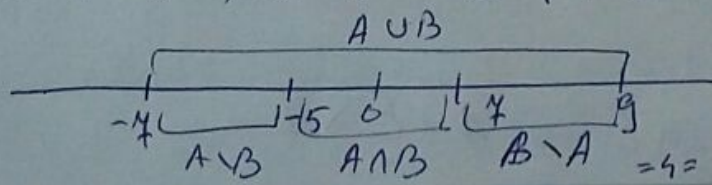 A∪B
-7 -5 0 7 9
A\B A∩B B\A =4=